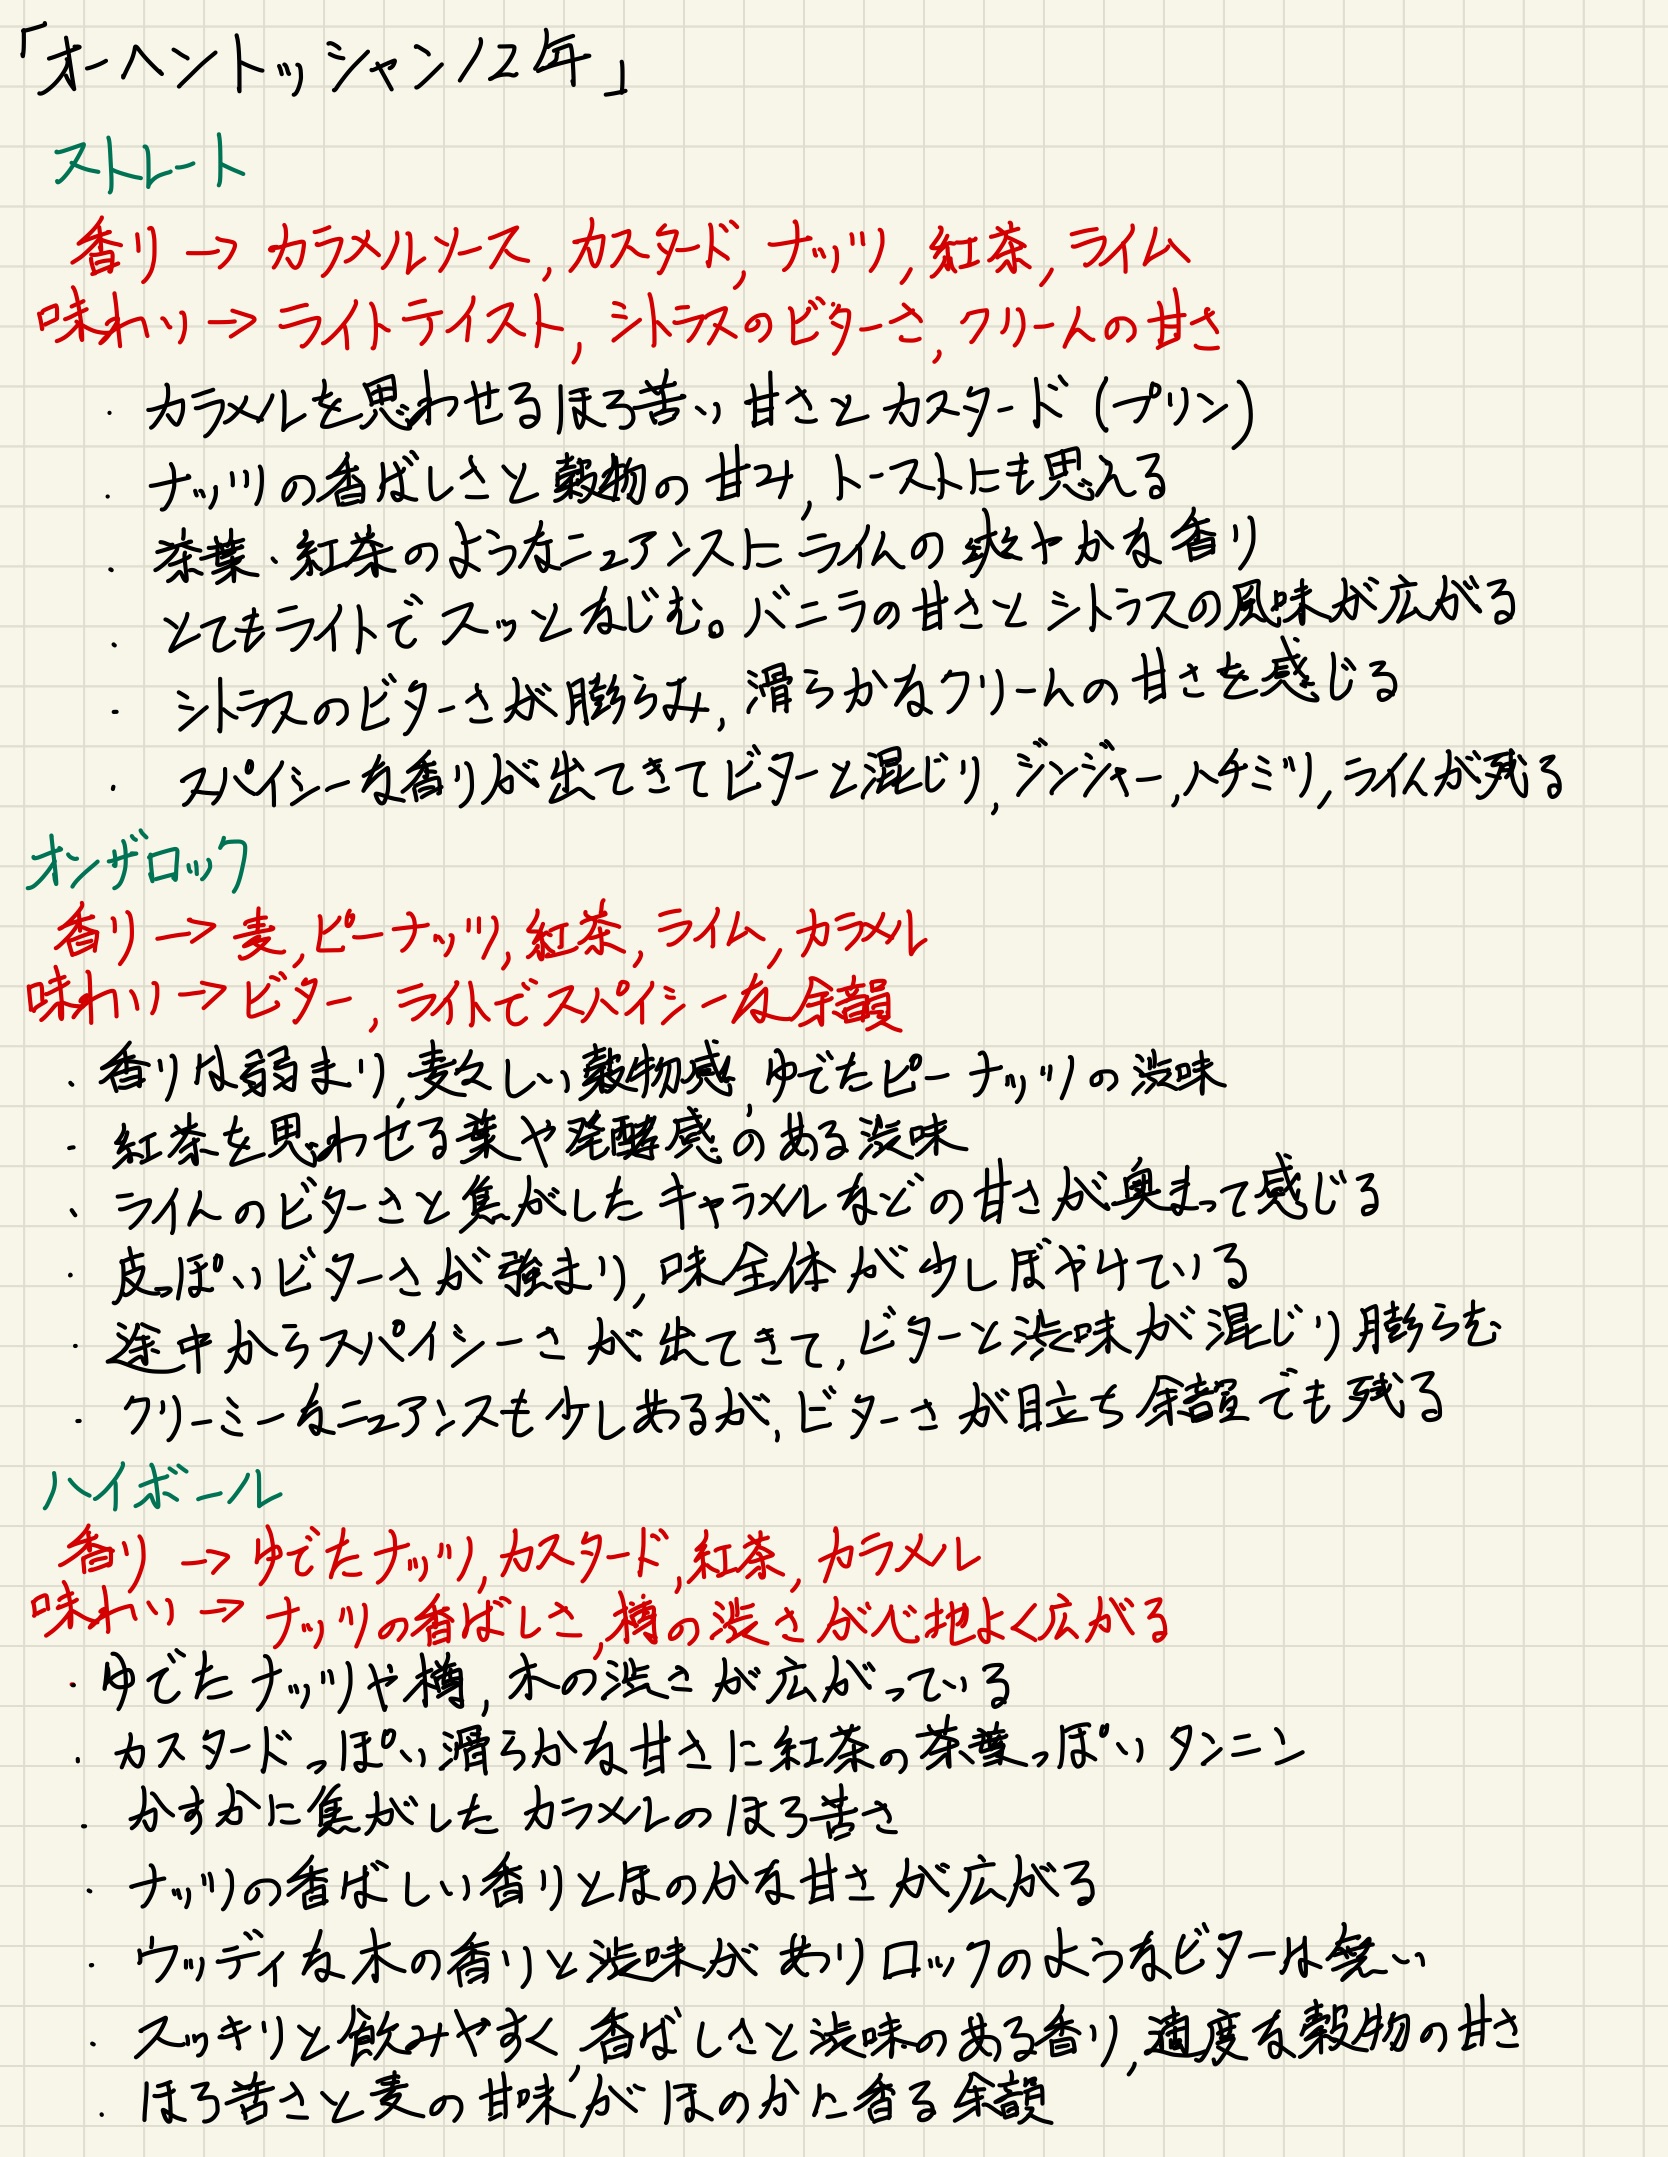 「オーヘントッシャン12年」
ストレート
香り → カラメルソース, カスタード, ナッツ, 紅茶, ライム
味わい → ライトテイスト, シトラスのビターさ, クリームの甘さ
・カラメルを思わせるほろ苦い甘さとカスタード (プリン)
・ナッツの香ばしさと穀物の甘み, トーストにも思える
・茶葉・紅茶のようなニュアンスにライムの爽やかな香り
・とてもライトでスッとなじむ。バニラの甘さとシトラスの風味が広がる
・シトラスのビターさが膨らみ, 滑らかなクリームの甘さを感じる
・スパイシーな香りが出てきてビターと混じり, ジンジャー, ハチミツ, ライムが残る
オンザロック
香り → 麦, ピーナッツ, 紅茶, ライム, カラメル
味わい → ビター, ライトでスパイシーな余韻
・香りは弱まり, 麦々しい穀物感, ゆでたピーナッツの渋味
・紅茶を思わせる葉や発酵感のある渋味
・ライムのビターさと焦がしたキャラメルなどの甘さが奥まって感じる
・皮っぽいビターさが強まり, 味全体が少しぼやけている
・途中からスパイシーさが出てきて, ビターと渋味が混じり膨らむ
・クリーミーなニュアンスも少しあるが, ビターさが目立ち余韻でも残る
ハイボール
香り → ゆでたナッツ, カスタード, 紅茶, カラメル
味わい → ナッツの香ばしさ, 樽の渋さが心地よく広がる
・ゆでたナッツや樽, 木の渋さが広がっている
・カスタードっぽい滑らかな甘さに紅茶の茶葉っぽいタンニン
・かすかに焦がしたカラメルのほろ苦さ
・ナッツの香ばしい香りとほのかな甘さが広がる
・ウッディな木の香りと渋味がありロックのようなビターは無い
・スッキリと飲みやすく, 香ばしさと渋味のある香り, 適度な穀物の甘さ
・ほろ苦さと麦の甘味がほのかに香る余韻